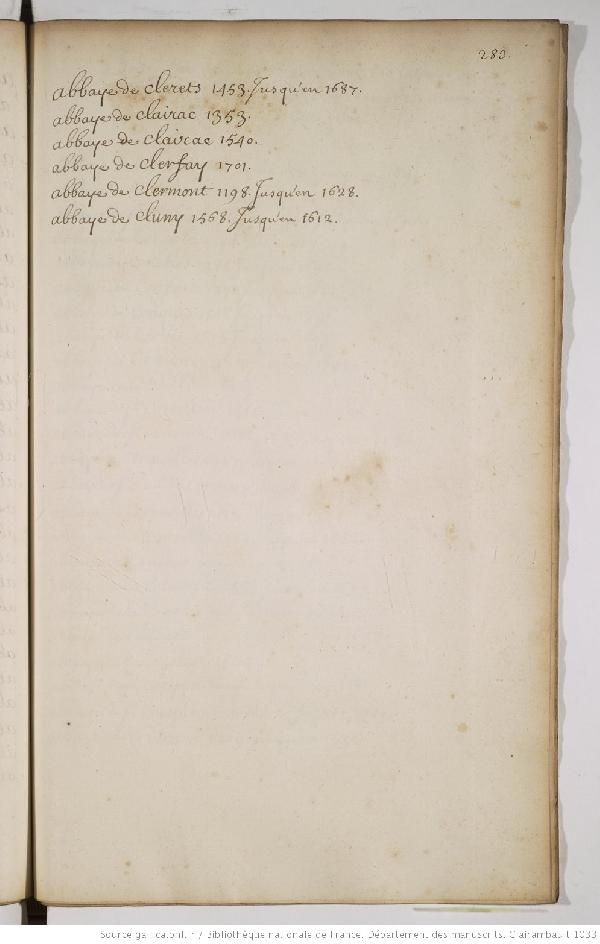 283.
abbaye de clerets 1453. Jusqu'en 1687.
abbaye de clairac 1353.
abbaye de clairac 1540.
abbaye de clerfay 1701.
abbaye de clermont 1198. Jusqu'en 1628.
abbaye de cluny 1568. Jusqu'en 1612.
Source gallica.bnf.fr / Bibliothèque nationale de France. Département des manuscrits. Clairambault 1033